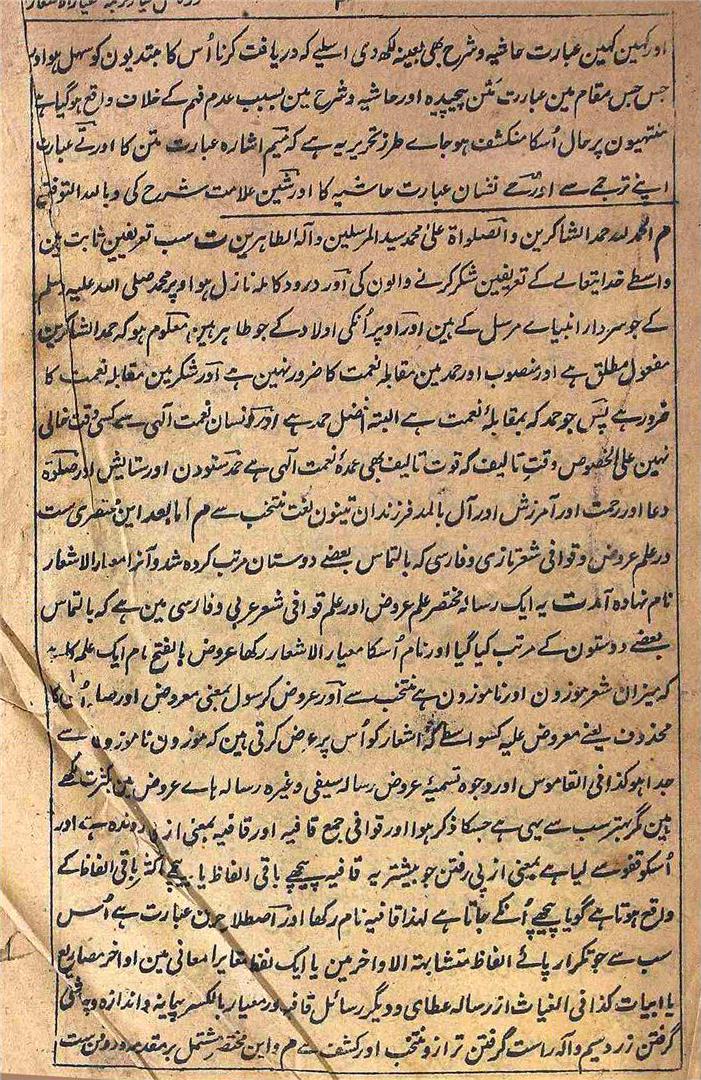 اور کہین کہین عبارت حاشیہ و شرح بھی بعینہ لکھدی اسلیے کہ دریافت کرنا اُس کا مبتدیون کو سہل ہو اور
جس جس مقام مین عبارت متن پیچیدہ اور حاشیہ و شرح مین بسبب عدم فہم کے خلاف واقع ہو گیا ہے
منتہیون پر حال اُسکا منکشف ہو جاے طرز تحریر یہ ہے کہ میم اشارہ عبارت متن کا اور تے عبارت
اپنے ترجمے سے اور حے نشان عبارت حاشیہ کا اور شین علامت شرح کی و باللہ التوفیق
م الحمد للہ حمد الشاکرین والصلواۃ علیٰ محمد سید المرسلین وآلہ الطاہرین ت سب تعریفین ثابت ہین
واسطے خدایتعالے کے تعریفین شکر کرنے والون کی اور درود کاملہ نازل ہو اوپر محمد صلی اللہ علیہ وسلم
کے جو سردار انبیاے مرسل کے ہین اور اوپر اُنکی اولاد کے جو طاہر ہین معلوم ہو کہ حمد الشاکرین
مفعول مطلق ہے اور منصوب اور حمد مین مقابلہ نعمت کا ضرور نہین ہے اور شکر مین مقابلہ نعمت کا
ضرور ہے پس جو حمد کہ بمقابلۂ نعمت ہے البتہ افضل حمد ہے اور کو انسان نعمت آلہی سے کسی وقت خالی
نہین علی الخصوص وقتِ تالیف کہ قوت تالیف بھی عمدۂ نعمت آلہی ہے حمد ستودن اور ستایش اور صلوۃ
دعا اور رحمت اور آمرزش اور آل بالمد فرزندان تینون لغت منتخب سے م اما بعد این مختصری ست
در علم عروض و قوافی شعر تازی و فارسی کہ بالتماس بعضے دوستان مرتب کردہ شد و آنرا معیار الاشعار
نام نہادہ آمد ت یہ ایک رسالہ مختصر علم عروض اور علم قوافی شعر عربی و فارسی مین ہے کہ بالتماس
بعضے دوستون کے مرتب کیا گیا اور نام اُسکا معیار الاشعار رکھا عروض بالفتح نام ایک علم کا ہے
کہ میزان شعر موزون اور ناموزون ہے منتخب سے اور عروض کرسول بمعنی معروض اور صلہ اُسکا
محذوف یعنے معروض علیہ کسو اسطے کہ اشعار کو اُس پر عرض کرتی ہین کہ موزون ناموزون سے
جدا ہو کذا فی القاموس اور وجوہ تسمیۂ عروض رسالہ سیفی وغیرہ رسالہ ہاے عروض مین بکثرت لکھے
ہین مگر بہتر سب سے یہی ہے جسکا ذکر ہوا اور قوافی جمع قافیہ اور قافیہ بمعنی از پی روندہ ہے اور
اُسکو قفو سے لیا ہے بمعنی از پی رفتن جو بیشتر یہ قافیہ پیچھے باقی الفاظ یا پیچھے اکثر باقی الفاظ کے
واقع ہوتا ہے گویا پیچھے اُنکے جاتا ہے لہذا قافیہ نام رکھا اور اصطلاح مین عبارت ہے اُس
سب سے جو تکرار پائے الفاظ متشابہۃ الاواخر مین یا ایک لفظ متغایر المعانی مین اواخر مصاریع
یا ابیات کذا فی الغیاث از رسالہ عطای و دیگر رسائل قافیہ اور معیار بالکسر پیمانہ و اندازہ و چاشنی
گرفتن زر و سیم و آلہ راست گرفتن ترازو منتخب اور کشف سے م و این مختصر مشتمل بر مقدمہ و دو فن ست